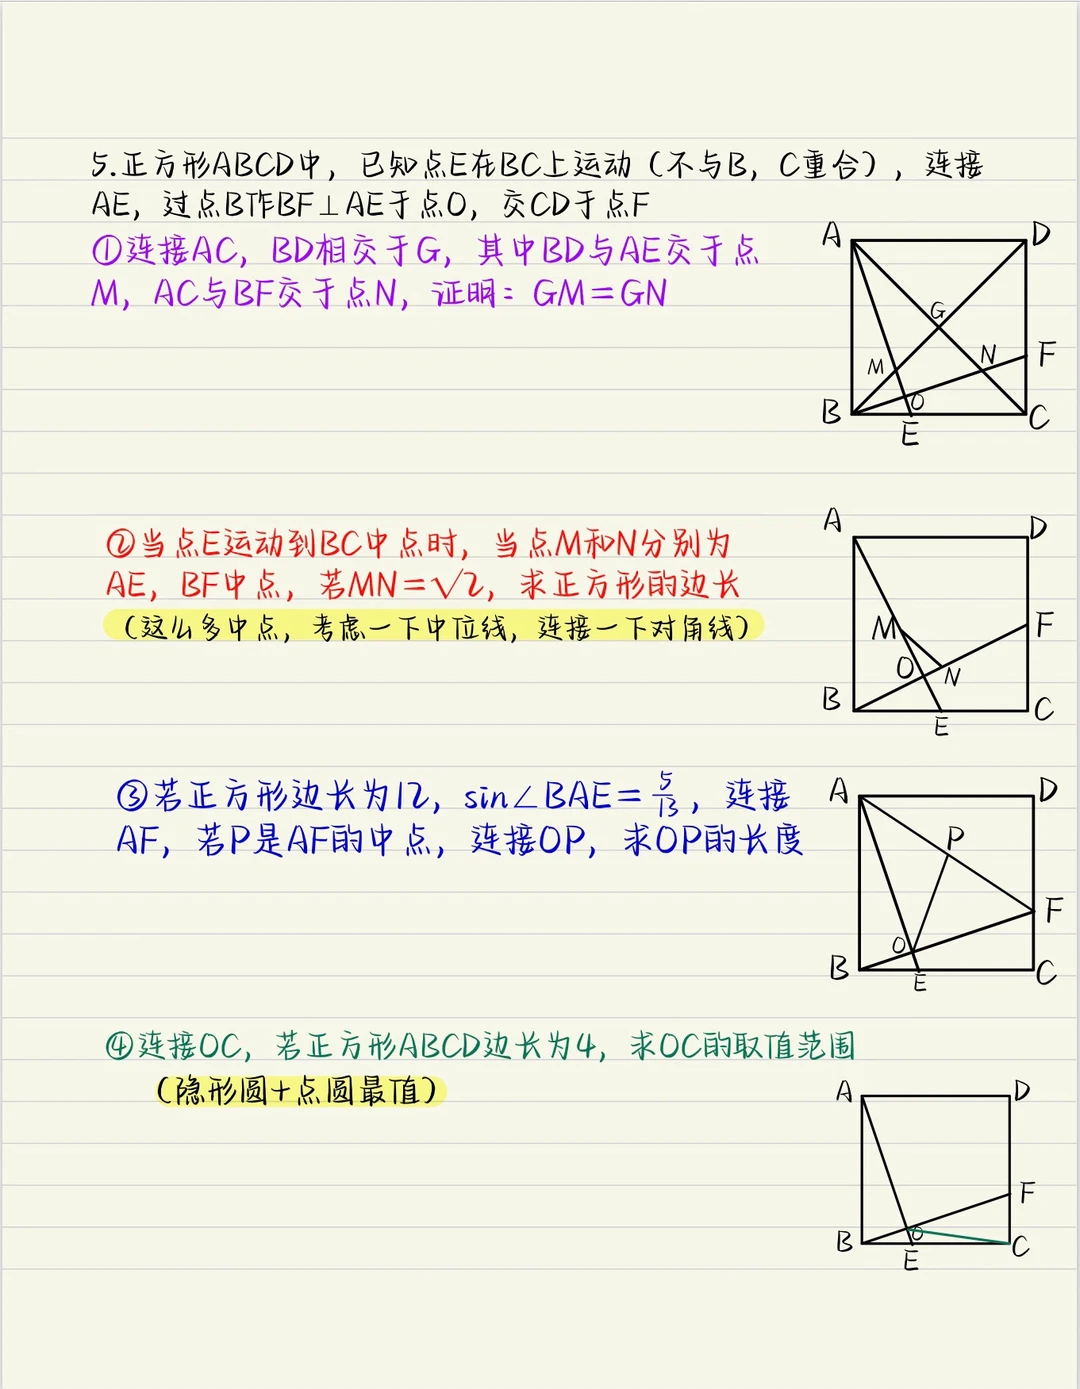 5.正方形ABCD中，已知点E在BC上运动（不与B，C重合），连接
AE，过点B作BF⊥AE于点O，交CD于点F
①连接AC，BD相交于G，其中BD与AE交于点
M，AC与BF交于点N，证明：GM=GN
A
D
G
M
N
F
B
O
E
C
②当点E运动到BC中点时，当点M和N分别为
AE，BF中点，若MN=√2，求正方形的边长
（这么多中点，考虑一下中位线，连接一下对角线）
A
D
M
F
O
N
B
E
C
③若正方形边长为12，sin∠BAE=5/13，连接
AF，若P是AF的中点，连接OP，求OP的长度
A
D
P
F
O
B
E
C
④连接OC，若正方形ABCD边长为4，求OC的取值范围
（隐形圆+点圆最值）
A
D
F
B
O
E
C